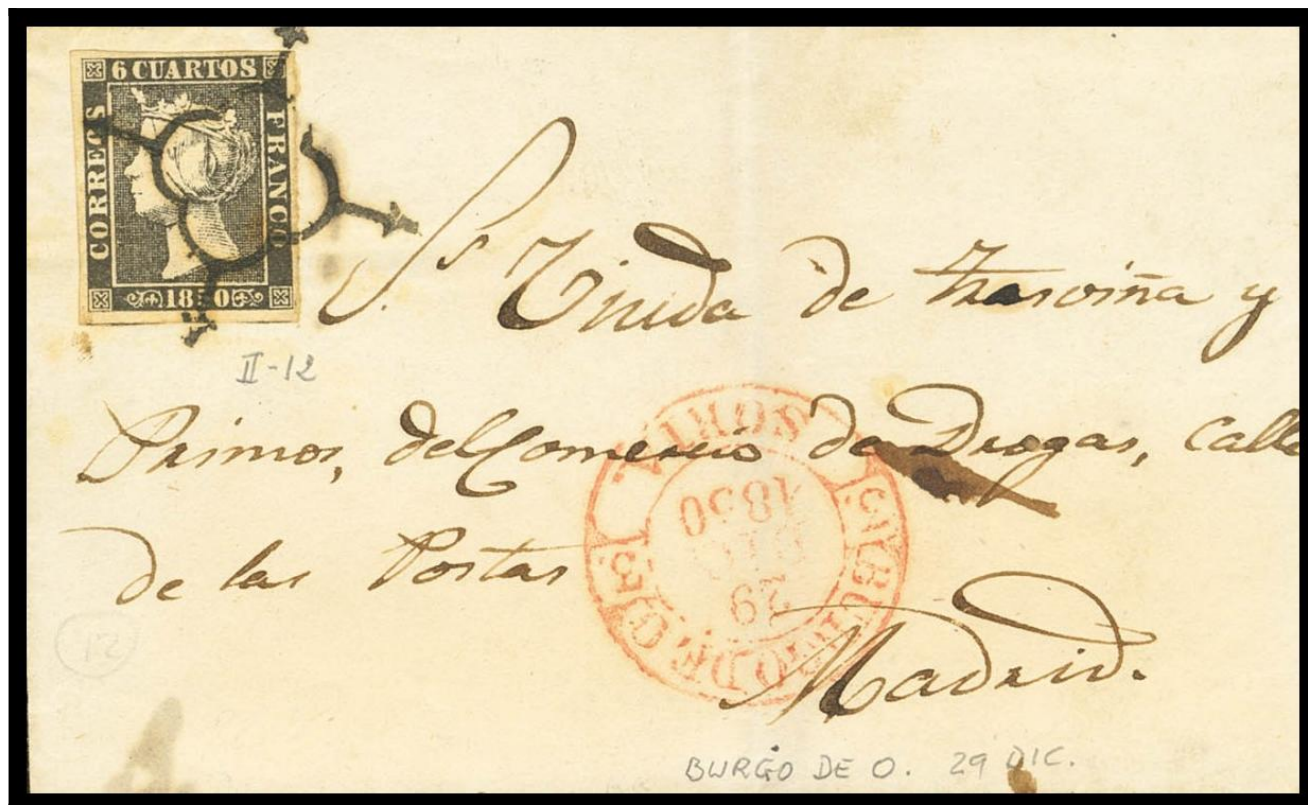 6 CUARTOS
CORREOS
FRANCO
1850
II-12
Sra Viuda de Trasviña y
Primos, del Comercio de Drogas, Calle
de las Postas
Madrid.
SORIA.
BURGO DE O
29 DIC 1850
12
BURGO DE O. 29 DIC.